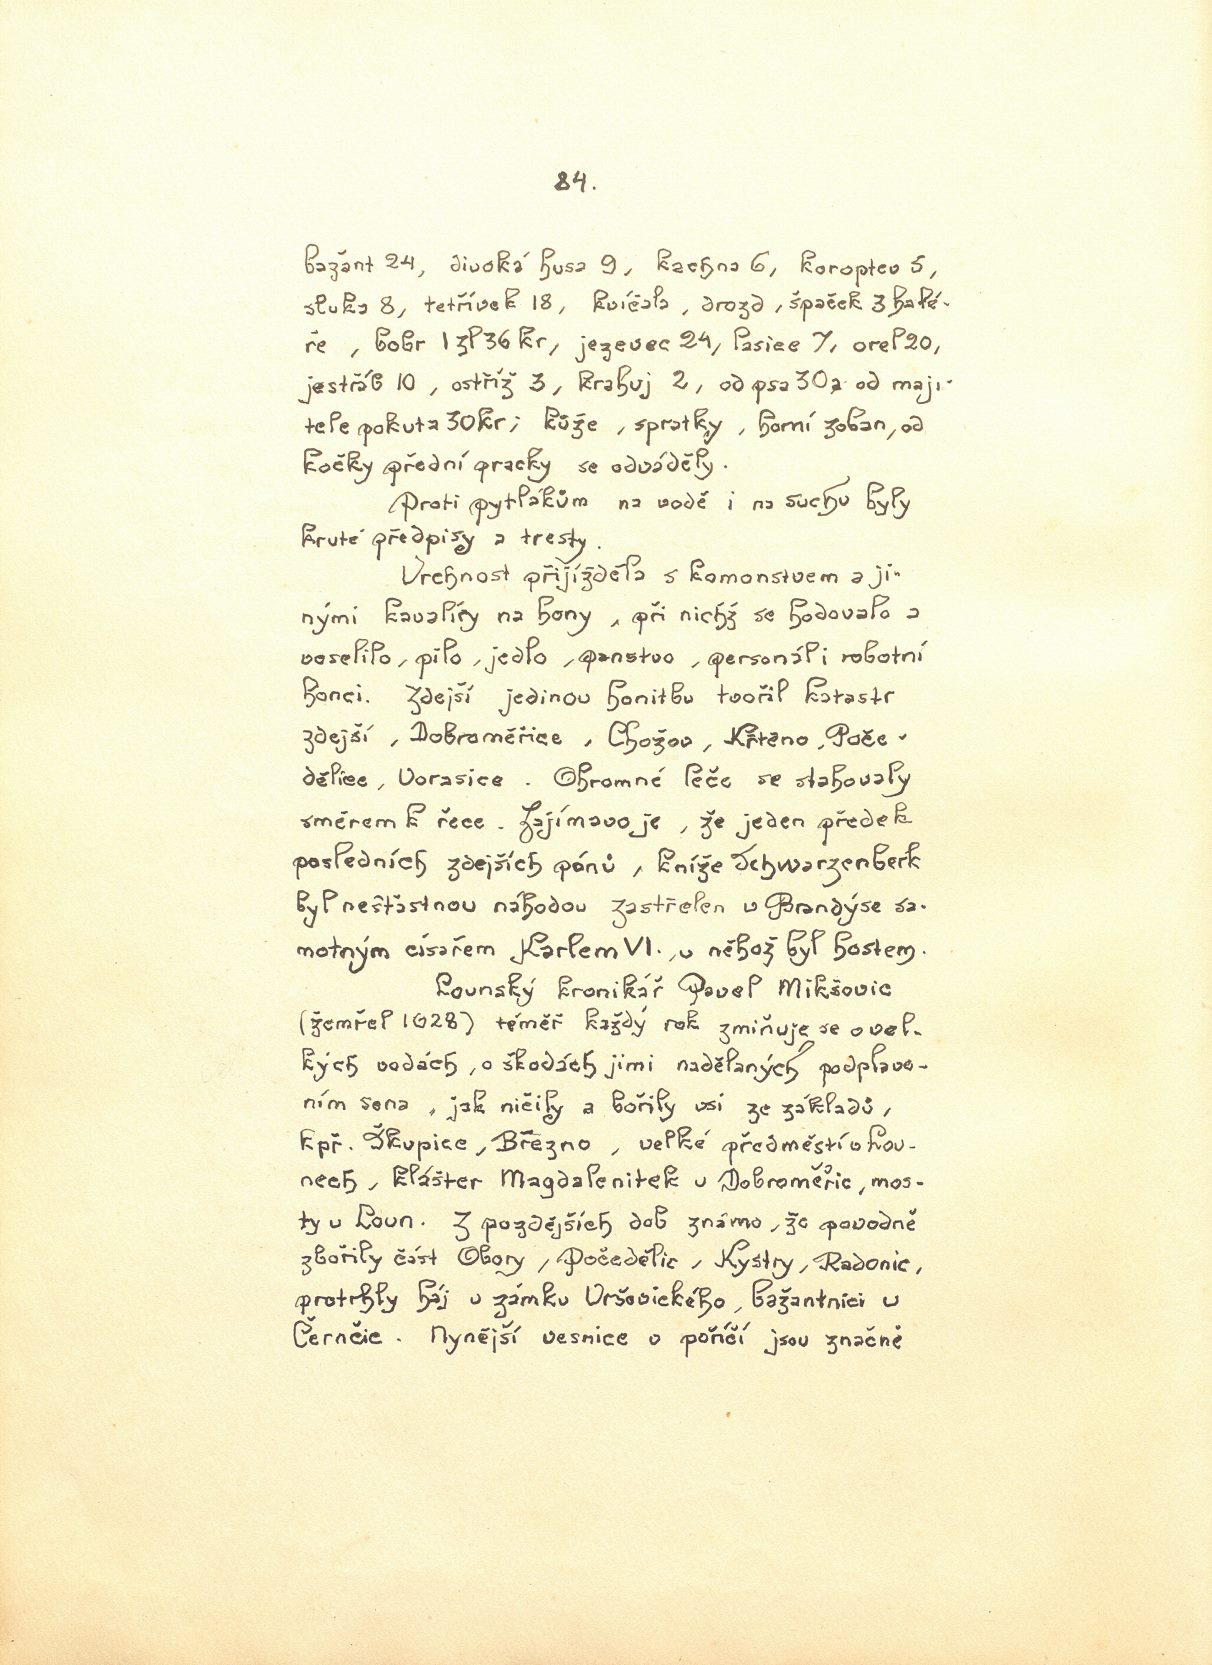 84.
bažant 24, divoká husa 9, kachna 6, koroptev 5,
sluka 8, tetřívek 18, kvíčala, drozd, špaček 3 halé-
ře, bobr 1 zl 36 kr, jezevec 24, lasice 7, orel 20,
jestřáb 10, ostříž 3, krahuj 2, od psa 30, od maji-
tele pokuta 30 kr; kůže, spratky, horní zoban, od
kočky přední pracky se odváděly.
Proti pytlákům na vodě i na suchu byly
kruté předpisy a tresty.
Vrchnost přijížděla s komonstvem a ji-
nými kavalíry na hony, při nichž se hodovalo a
veselilo, pilo, jedlo, panstvo, personál i robotní
honci. Zdejší jedinou honitbu tvořil katastr
zdejší, Dobroměřice, Chožov, Křtěno, Poče-
dělice, Vorasice. Ohromné leče se stahovaly
směrem k řece. Zajímavo je, že jeden předek
posledních zdejších pánů, kníže Schwarzenberk
byl nešťastnou náhodou zastřelen v Brandýse sa-
motným císařem Karlem VI., u něhož byl hostem.
Lounský kronikář Pavel Mikšovic
(žemřel 1628) téměř každý rok zmiňuje se o vel-
kých vodách, o škodách jimi nadělaných podplave-
ním sena, jak ničily a bořily vsi ze základů,
kpř. Škupice, Březno, velké předměstí v Lou-
nech, klášter Magdalenitek u Dobroměřic, mos-
ty u Loun. Z pozdějších dob známo, že povodně
zbořily část Obory, Počedělic, Kystry, Radonic,
protrhly háj u zámku Vršovického, bažantnici u
Černčic. Nynější vesnice v poříčí jsou značně